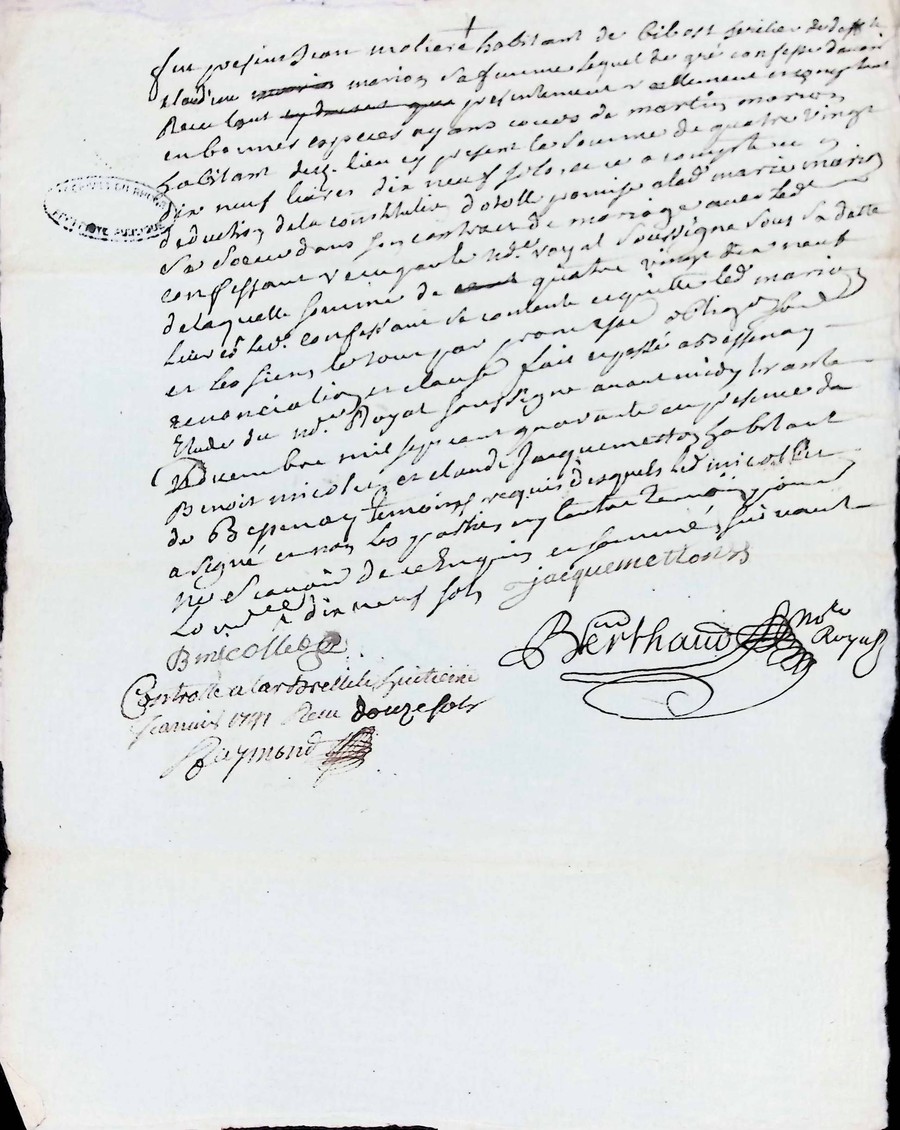 fut present Jean moliere habitant de bibost heritier de deffte
claudine marion sa femme lequel de gré confesse davoir
Receu tout presentement reellement et comptant
en bonnes especes ayans cours de martin marion
habitant dud. lieu cy present la somme de quatre vingt
dix neuf livres dix neuf sols et ce a compte et en
deduction de la constitution dotalle promise a lad. marie marion
sa soeur dans son contract de mariage avec led.
confessant receu par le no.re royal soussigné sous sa datte
de laquelle somme de quatre vingt dix neuf
livres led. confessant se contente et quitte led. marion
et les siens le tout par promesse obligaon
renonciation et clause fait et passé a Bessenay
Etude du no.re Royal soussigné avant midy trante
decembre mil sept cent quarante en presence de
Benoit micollet et claude Jacquemetton habitant
de Bessenay temoins requis desquels led. micollet
a signé et non les parties ny lautre temoin pour
ne scavoir de ce Enquis et sommés suivant
Lo dix neuf sols jacquemetton
B micollet
Berthaud no.re Royal
Controllé a larbrelle le huitieme
Janvier 1741 Receu douze sols
Raymond